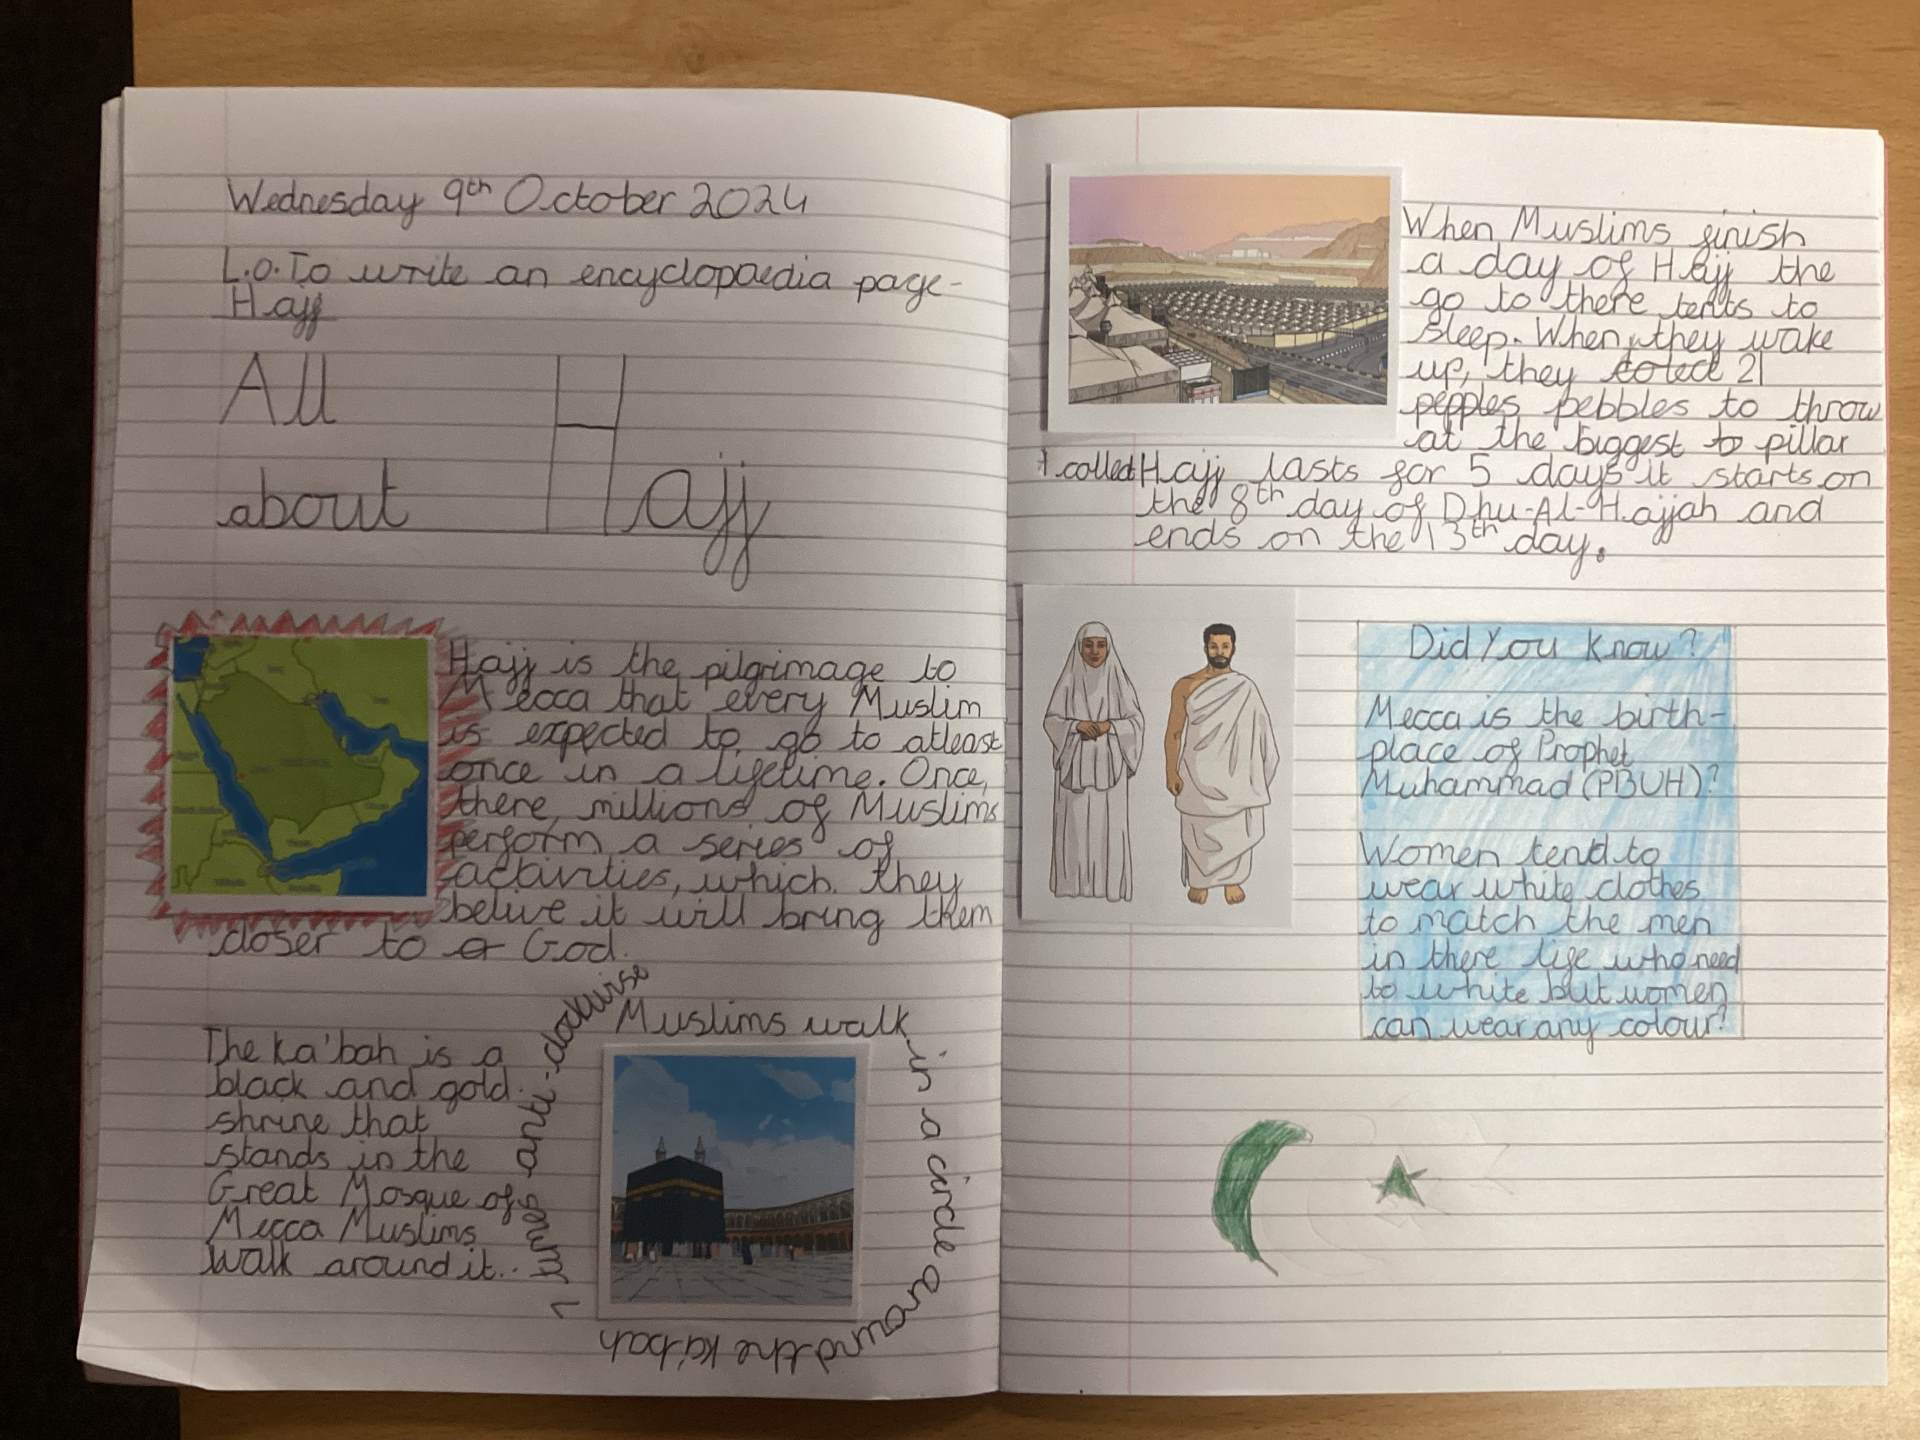 Wednesday 9th October 2024
L.O. To write an encyclopaedia page-
Hajj
All
about Hajj
Hajj is the pilgrimage to
Mecca that every Muslim
is expected to go to atleast
once in a lifetime. Once,
there, millions of Muslims
perform a series of
activities, which they
belive it will bring them
closer to God.
The Ka'bah is a
black and gold
shrine that
stands in the
Great Mosque of
Mecca Muslims
walk around it..
Muslims walk in a circle around the ka'bah 7 times anti-clockwise
When Muslims finish
a day of Hajj the
go to there tents to
sleep. When, they wake
up, they colect 21
pepples pebbles to throw
at the biggest to pillar
called
Hajj lasts for 5 days it starts on
the 8th day of Dhu-Al-Hajjah and
ends on the 13th day.
Did You Know?
Mecca is the birth-
place of Prophet
Muhammad (PBUH)?
Women tend to
wear white clothes
to match the men
in there life who need
to white but women
can wear any colour?